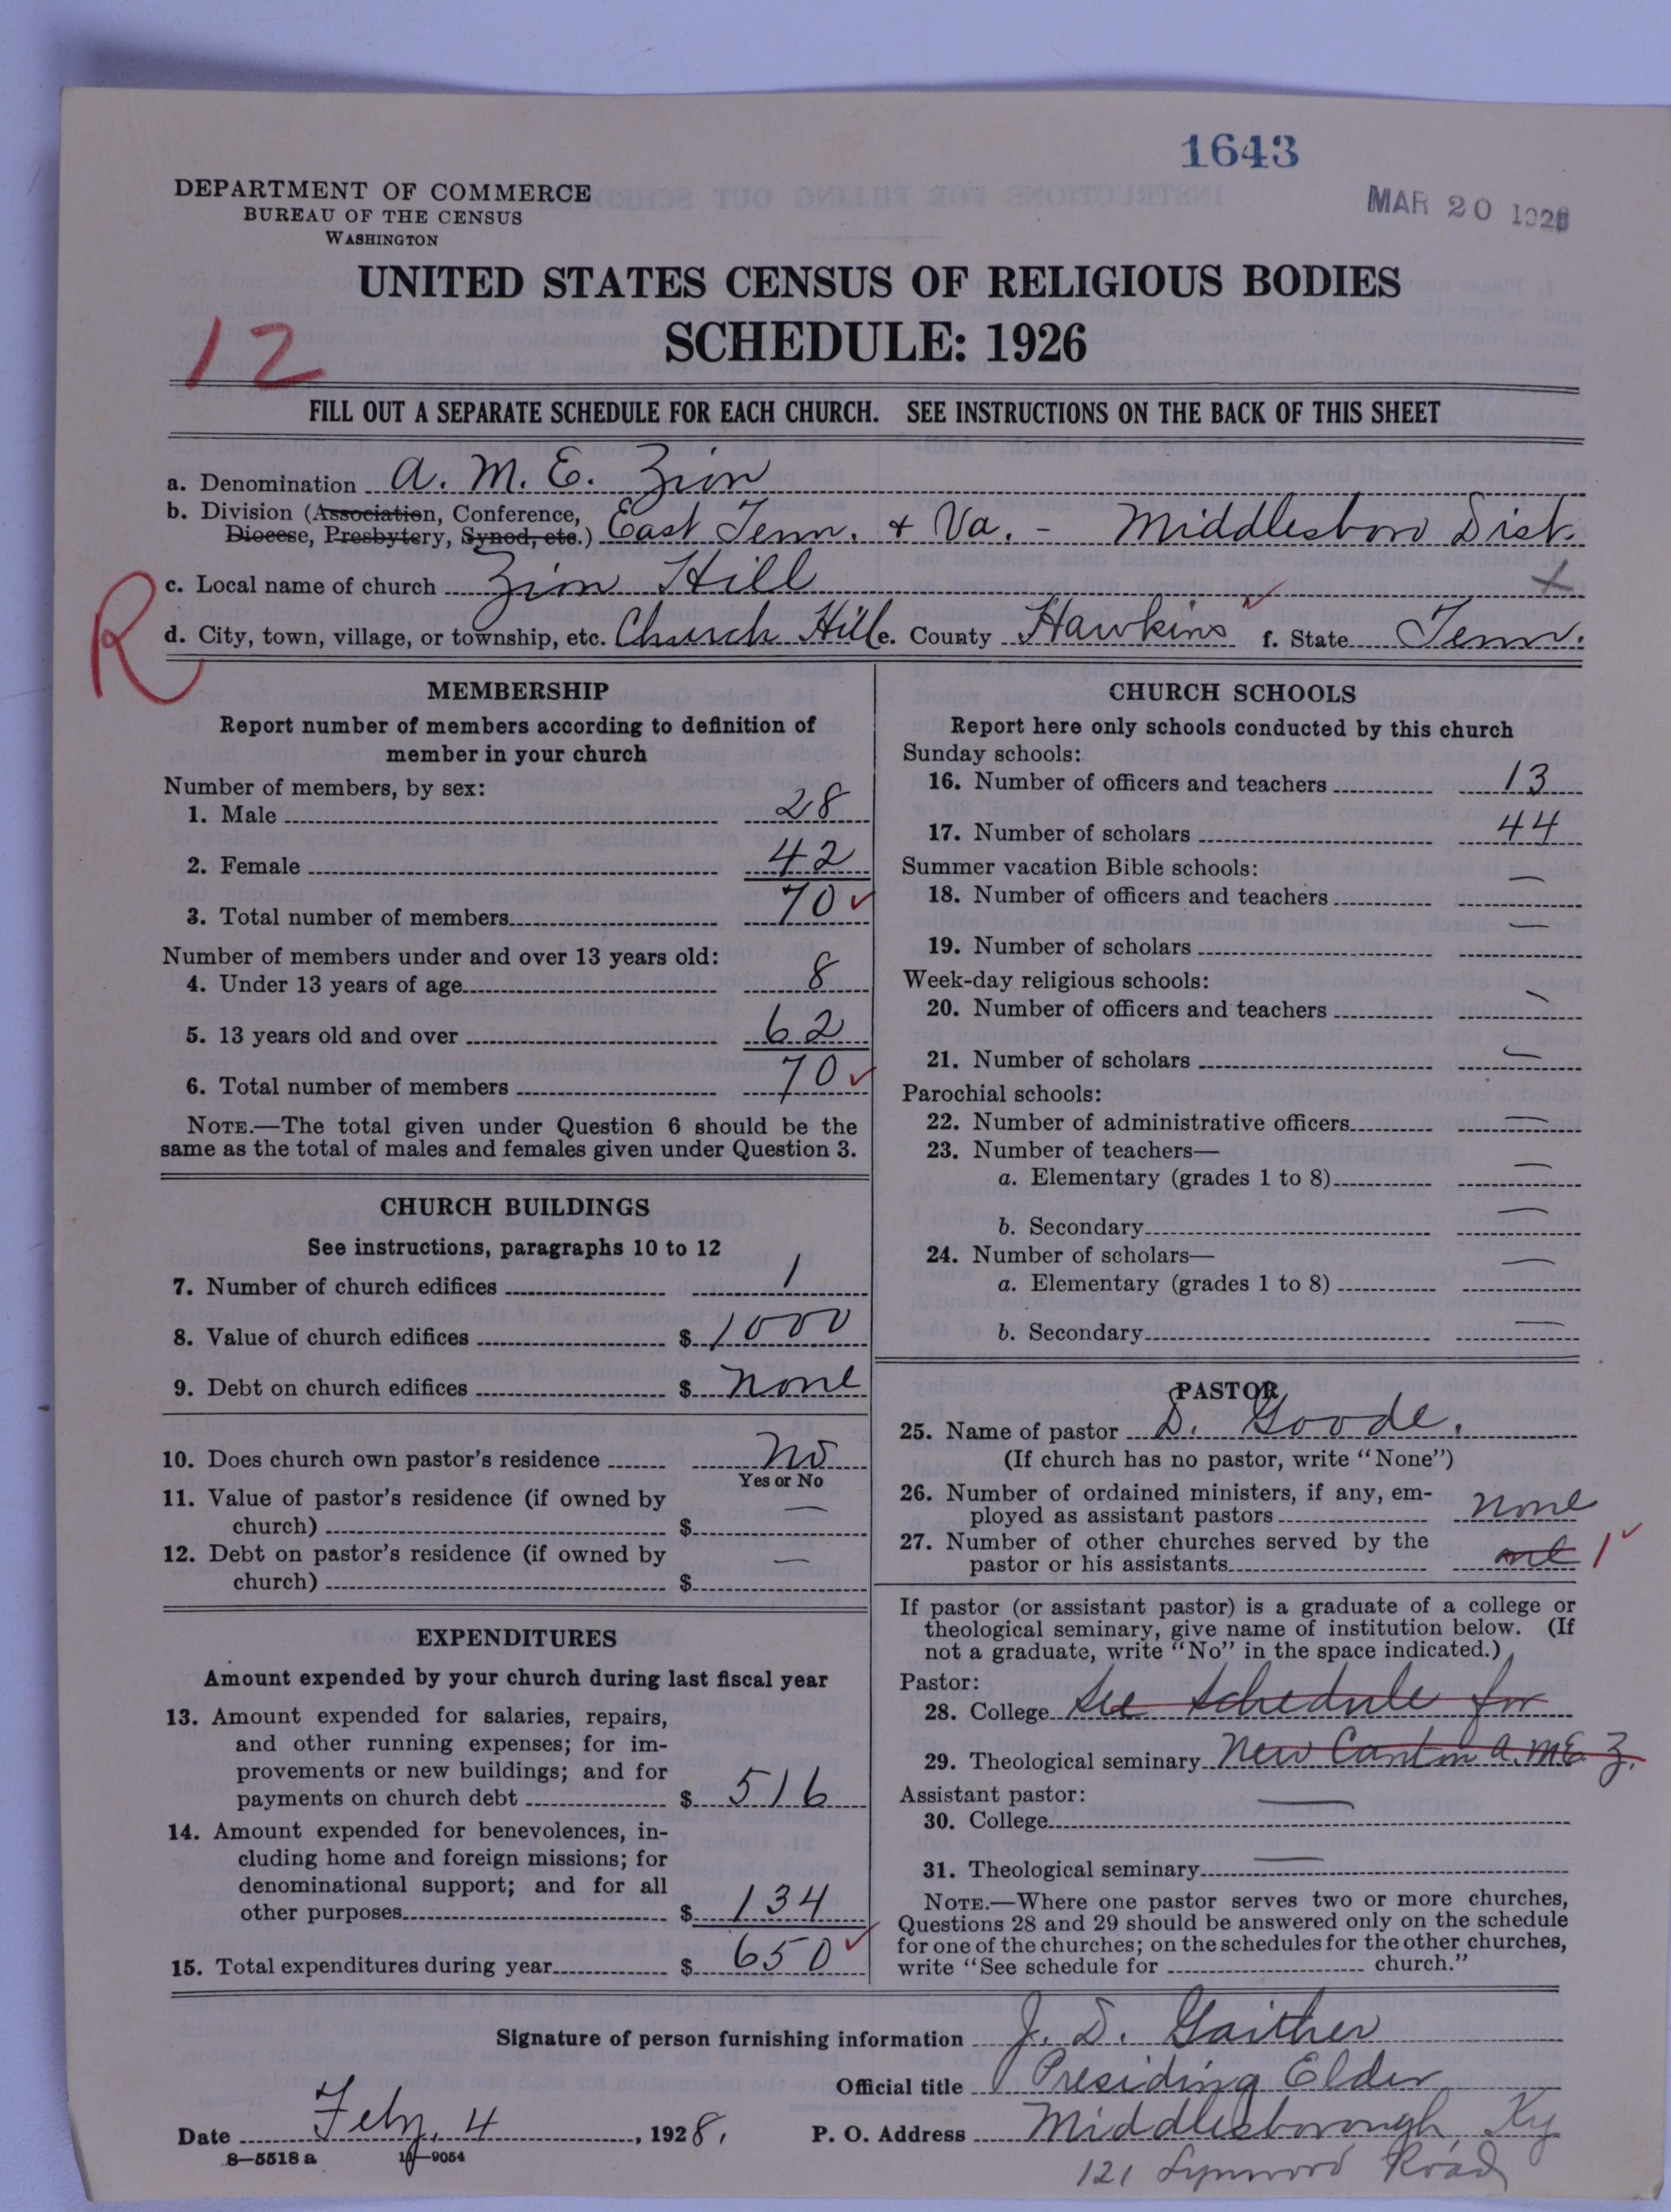 1643
MAR 20 192
DEPARTMENT OF COMMERCE
BUREAU OF THE CENSUS
WASHINGTON
UNITED STATES CENSUS OF RELIGIOUS BODIES
SCHEDULE: 1926
12
FILL OUT A SEPARATE SCHEDULE FOR EACH CHURCH. SEE INSTRUCTIONS ON THE BACK OF THIS SHEET
a. Denomination A. M. E. Zion
b. Division (Association, Conference, Diocese, Presbytery, Synod, etc.) East Tenn. + Va. - Middlesboro Dist.
R
c. Local name of church Zion Hill x
d. City, town, village, or township, etc. Church Hill e. County Hawkins ✓ f. State Tenn.
MEMBERSHIP
Report number of members according to definition of
member in your church
Number of members, by sex:
1. Male 28
2. Female 42
3. Total number of members 70 ✓
Number of members under and over 13 years old:
4. Under 13 years of age 8
5. 13 years old and over 62
6. Total number of members 70 ✓
NOTE.—The total given under Question 6 should be the
same as the total of males and females given under Question 3.
CHURCH BUILDINGS
See instructions, paragraphs 10 to 12
7. Number of church edifices 1
8. Value of church edifices $ 1000
9. Debt on church edifices $ none
10. Does church own pastor's residence no
Yes or No
11. Value of pastor's residence (if owned by
church) $ —
12. Debt on pastor's residence (if owned by
church) $ —
EXPENDITURES
Amount expended by your church during last fiscal year
13. Amount expended for salaries, repairs,
and other running expenses; for im-
provements or new buildings; and for
payments on church debt $ 516
14. Amount expended for benevolences, in-
cluding home and foreign missions; for
denominational support; and for all
other purposes $ 134
15. Total expenditures during year $ 650 ✓
CHURCH SCHOOLS
Report here only schools conducted by this church
Sunday schools:
16. Number of officers and teachers 13
17. Number of scholars 44
Summer vacation Bible schools:
18. Number of officers and teachers —
19. Number of scholars —
Week-day religious schools:
20. Number of officers and teachers —
21. Number of scholars —
Parochial schools:
22. Number of administrative officers —
23. Number of teachers—
a. Elementary (grades 1 to 8) —
b. Secondary —
24. Number of scholars—
a. Elementary (grades 1 to 8) —
b. Secondary —
PASTOR
25. Name of pastor D. Goode.
(If church has no pastor, write "None")
26. Number of ordained ministers, if any, em-
ployed as assistant pastors none
27. Number of other churches served by the
pastor or his assistants one 1 ✓
If pastor (or assistant pastor) is a graduate of a college or
theological seminary, give name of institution below. (If
not a graduate, write "No" in the space indicated.)
Pastor:
28. College See schedule for
29. Theological seminary New Canton A. M. E. Z.
Assistant pastor:
30. College —
31. Theological seminary —
NOTE.—Where one pastor serves two or more churches,
Questions 28 and 29 should be answered only on the schedule
for one of the churches; on the schedules for the other churches,
write "See schedule for church."
Signature of person furnishing information J. D. Gaither
Official title Presiding Elder
Date Feby. 4, 1928. P. O. Address Middlesborough, Ky
8—5518 a 11—9054
121 Road